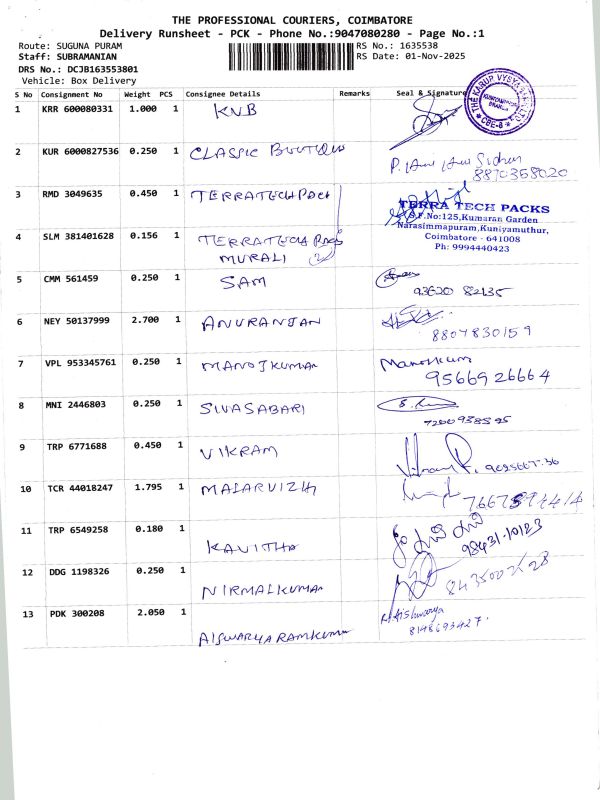 THE PROFESSIONAL COURIERS, COIMBATORE
Delivery Runsheet - PCK - Phone No.:9047080280 - Page No.:1
Route: SUGUNA PURAM RS No.: 1635538
Staff: SUBRAMANIAN RS Date: 01-Nov-2025
DRS No.: DCJB163553801
Vehicle: Box Delivery
S No Consignment No Weight PCS Consignee Details Remarks Seal & Signature
1 KRR 600080331 1.000 1 KVB
THE KARUR VYSYA BANK LTD
KUNIYAMUTHUR BRANCH
CBE-8
2 KUR 6000827536 0.250 1 CLASSIC BOUTIQUE
8870358020
3 RMD 3049635 0.450 1 TERRATECH PACK
TERRA TECH PACKS
S.F.No:125,Kumaran Garden
Narasimmapuram,Kuniyamuthur,
Coimbatore - 641008
Ph: 9994440423
4 SLM 381401628 0.156 1 TERRATECH PACKS
MURALI
5 CMM 561459 0.250 1 SAM
93620 82135
6 NEY 50137999 2.700 1 ANURANJAN
8807830159
7 VPL 953345761 0.250 1 MANOJKUMAR Manojkumar
9566926664
8 MNI 2446803 0.250 1 SIVASABARI
9 TRP 6771688 0.450 1 VIKRAM
10 TCR 44018247 1.795 1 MALARVIZHI
11 TRP 6549258 0.180 1 KAVITHA
98431-10123
12 DDG 1198326 0.250 1 NIRMALKUMAR
13 PDK 300208 2.050 1 AISWARYA RAMKUMAR
R. Aishwarya
8148693427